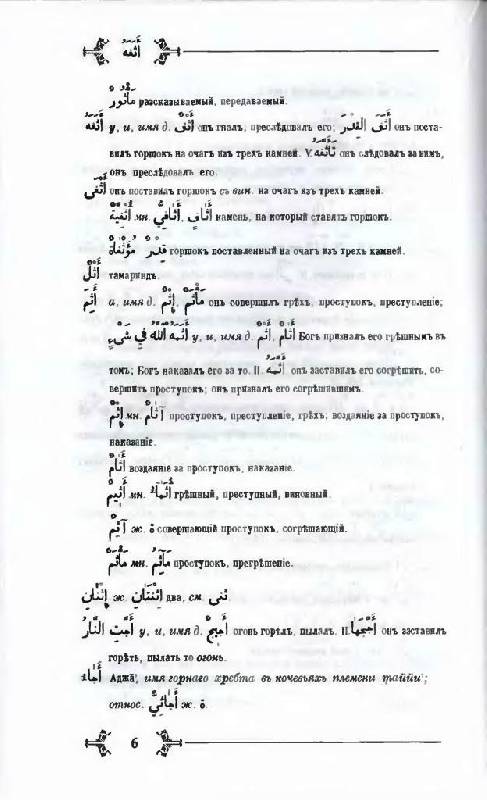 أثفه
مَأْثُور разсказываемый, передаваемый.
أَثَفَهُ у, и, имя д. أَثْف онъ гналъ; преслѣдовалъ его; أَثَفَ القِدْرَ онъ поста-
вилъ горшокъ на очагъ изъ трехъ камней. V. تأثفه онъ слѣдовалъ за нимъ,
онъ преслѣдовалъ его.
أَثْفَى онъ поставилъ горшокъ съ вин. на очагъ изъ трехъ камней.
أُثْفِيَة мн. أَثَافِي, أَثَافٍ камень, на который ставятъ горшокъ.
قِدْر مُؤَثْفَاة горшокъ поставленный на очагъ изъ трехъ камней.
أَثْل тамариндъ.
أَثِمَ а, имя д. إِثْم, مَأْثَم онъ совершилъ грѣхъ, проступокъ, преступленіе;
أَثَمَهُ اللهُ فِي شَيْءٍ у, и, имя д. أَثْم, أَثَام Богъ призналъ его грѣшнымъ въ
томъ; Богъ наказалъ его за то. II. أثمه онъ заставилъ его согрѣшить, со-
вершить проступокъ; онъ призналъ его согрѣшившимъ.
إِثْم мн. آثَام проступокъ, преступленіе, грѣхъ; воздаяніе за проступокъ,
наказаніе.
أَثَام воздаяніе за проступокъ, наказаніе.
أَثِيم мн. أُثَمَاء грѣшный, преступный, виновный.
آثِم ж. ة совершающій проступокъ, согрѣшающій.
مَأْثَم мн. مَآثِم проступокъ, прегрѣшеніе.
إِثْنَانِ ж. إِثْنَتَانِ два, см. ثنى.
أَجَّتِ النَّارُ у, и, имя д. أَجِيج огонь горѣлъ, пылалъ. II. أَجَّجَهَا онъ заставилъ
горѣть, пылать то огонь.
أجاء Аджа̄, имя горнаго хребта въ кочевьяхъ племени т̣аййи';
относ. أَجَائِيّ ж. ة.
6